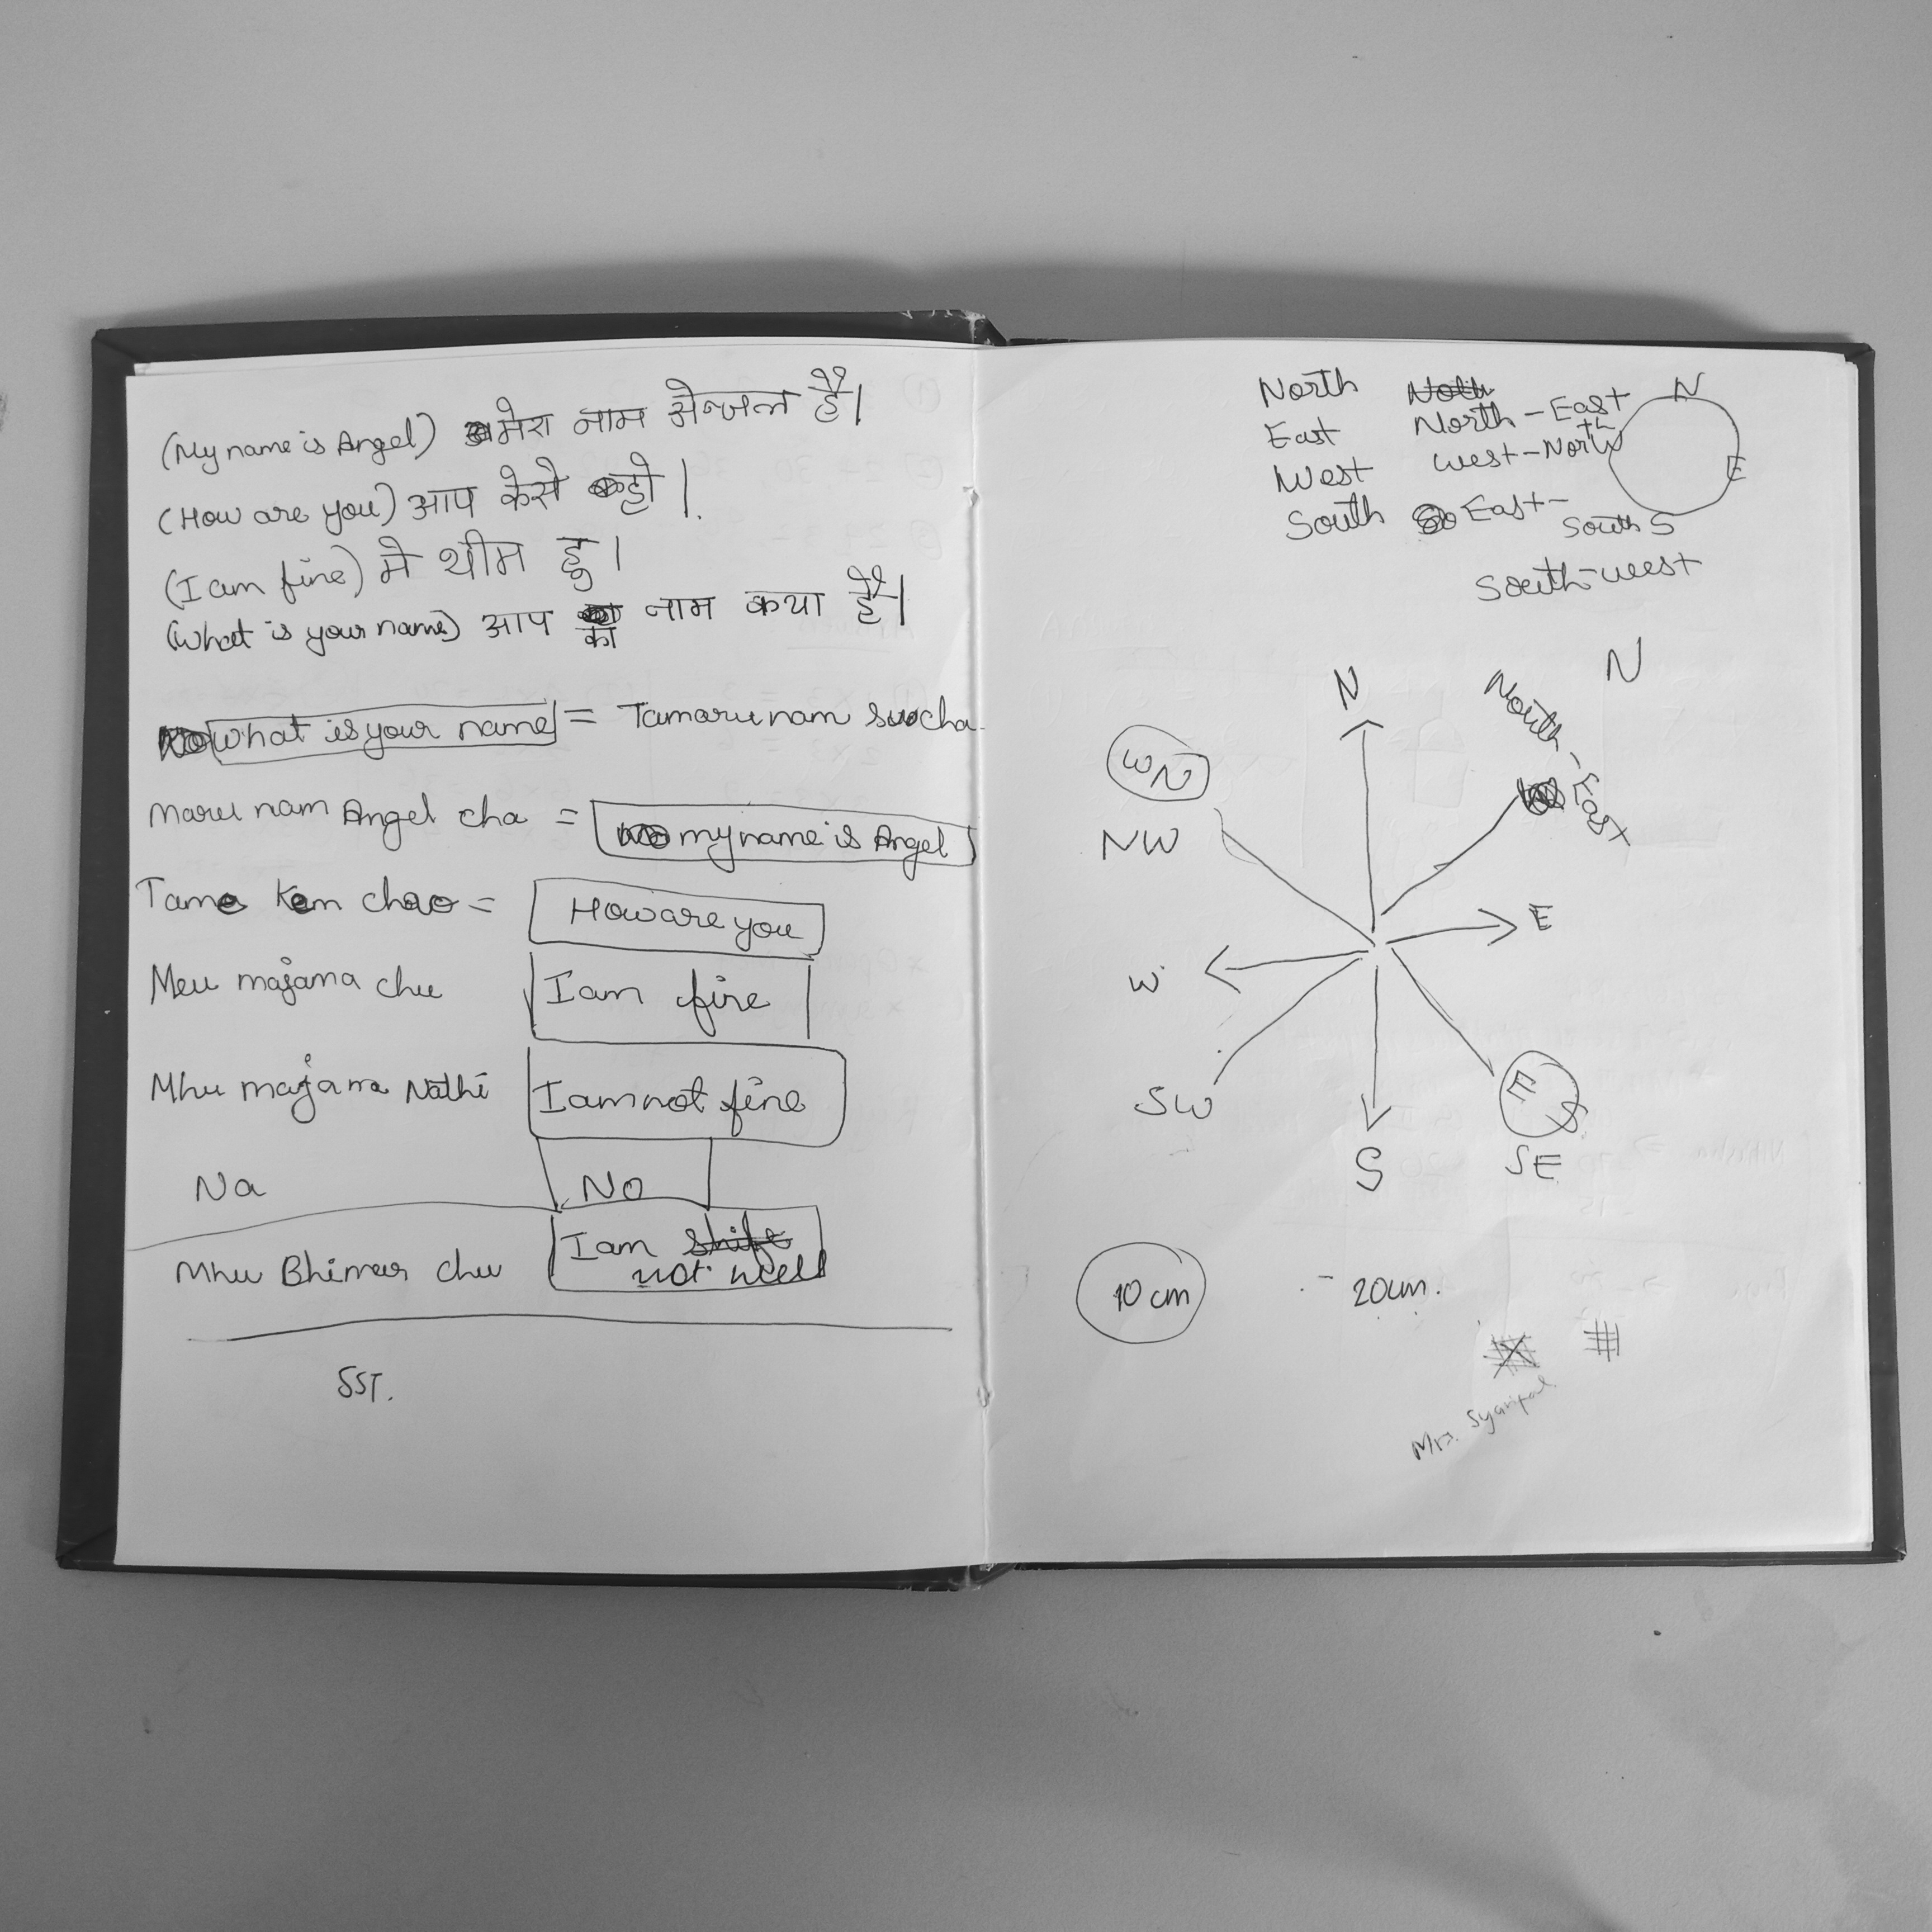 (My name is Angel) मेरा नाम ऐन्जल है।
(How are you) आप केसे हो।
(I am fine) मे थीम हु।
(What is your name) आप का नाम कया है।
What is your name = Tamaru nam su cha.
Maru nam Angel cha = my name is Angel
Tame Kem chao = How are you
Meu majama chu I am fine
Mhu majama Nathi I am not fine
Na No
Mhu Bhimar chu I am not well
SST.
North North-East N
East West-North E
West East-South S
South South-west
N
N
North-East
WN
NW
E
W
SW
S
E S
SE
10 cm - 20cm.
Mrs.